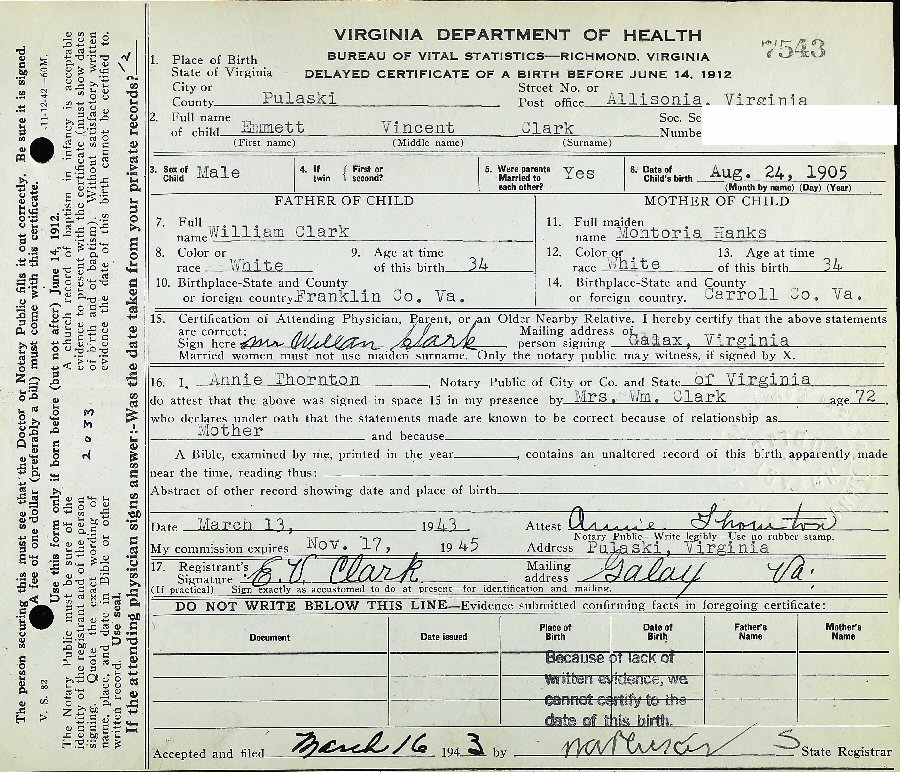 VIRGINIA DEPARTMENT OF HEALTH
BUREAU OF VITAL STATISTICS—RICHMOND, VIRGINIA
DELAYED CERTIFICATE OF A BIRTH BEFORE JUNE 14, 1912
7543
1. Place of Birth
State of Virginia
City or Street No. or
County Pulaski Post office Allisonia, Virginia
2. Full name Soc. Se
of child Emmett Vincent Clark Numbe
(First name) (Middle name) (Surname)
3. Sex of Child Male 4. If twin { First or second? 5. Were parents Married to each other? Yes 6. Date of Child's birth Aug. 24, 1905
(Month by name) (Day) (Year)
FATHER OF CHILD MOTHER OF CHILD
7. Full name William Clark 11. Full maiden name Montoria Hanks
8. Color or race White 9. Age at time of this birth 34 12. Color or race White 13. Age at time of this birth 34
10. Birthplace-State and County or foreign country. Franklin Co. Va. 14. Birthplace-State and County or foreign country. Carroll Co. Va.
15. Certification of Attending Physician, Parent, or an Older Nearby Relative. I hereby certify that the above statements
are correct: Mailing address of
Sign here Mrs William Clark person signing Galax, Virginia
Married women must not use maiden surname. Only the notary public may witness, if signed by X.
16. I, Annie Thornton, Notary Public of City or Co. and State of Virginia
do attest that the above was signed in space 15 in my presence by Mrs. Wm. Clark age 72
who declares under oath that the statements made are known to be correct because of relationship as
Mother and because
A Bible, examined by me, printed in the year , contains an unaltered record of this birth apparently made
near the time, reading thus:
Abstract of other record showing date and place of birth
Date March 13, 1943 Attest Annie Thornton
Notary Public—Write legibly Use no rubber stamp.
My commission expires Nov. 17, 1945 Address Pulaski, Virginia
17. Registrant's Signature E. V. Clark Mailing address Galax Va.
(If practical) Sign exactly as accustomed to do at present for identification and mailing.
DO NOT WRITE BELOW THIS LINE—Evidence submitted confirming facts in foregoing certificate:
Document Date issued Place of Birth Date of Birth Father's Name Mother's Name
Because of lack of
written evidence, we
cannot certify to the
date of this birth.
Accepted and filed March 16 1943 by State Registrar
The person securing this must see that the Doctor or Notary Public fills it out correctly. Be sure it is signed.
A fee of one dollar (preferably a bill) must come with this certificate.
V. S. 82 11-12-42—60M.
Use this form only if born before (but not after) June 14, 1912.
The Notary Public must be sure of the
identity of the registrant and of the person
signing. Quote the exact wording of
name, place, and date in Bible or other
written record. Use seal.
2033
A church record of baptism in infancy is acceptable
evidence to present with the certificate (must show dates
of birth and of baptism). Without satisfactory written
evidence the date of this birth cannot be certified to.
If the attending physician signs answer:-Was the date taken from your private records?